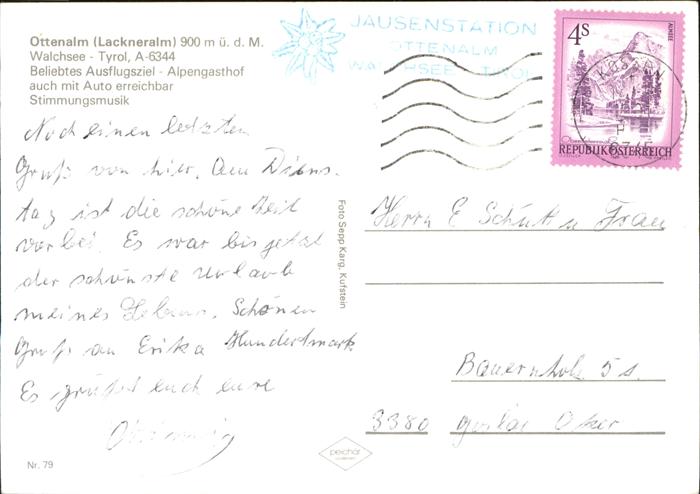 Ottenalm (Lackneralm) 900 m ü. d. M.
Walchsee - Tyrol, A-6344
Beliebtes Ausflugsziel - Alpengasthof
auch mit Auto erreichbar
Stimmungsmusik
JAUSENSTATION
OTTENALM
WALCHSEE - TIROL
4S
ALMSEE
REPUBLIK ÖSTERREICH
Noch einen letzten
Gruß von hier. Am Diens-
tag ist die schöne Zeit
vorbei. Es war bis jetzt
der schönste Urlaub
meines Lebens. Schönen
Gruß an Erika Hundertmark.
Es grüßt euch eure
Foto Sepp Karg, Kufstein
Herrn E Schütt u Frau
Bauernholz 5 s.
3380 Goslar Oker
Nr. 79